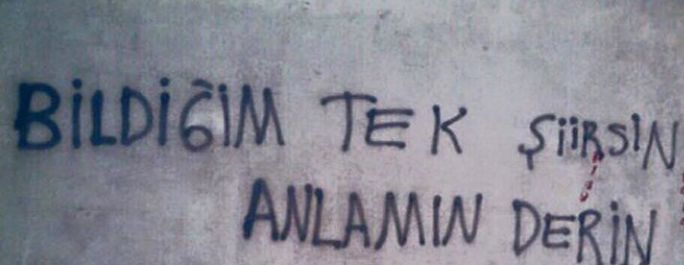 BİLDİĞİM TEK ŞİİRSİN
ANLAMIN DERİN